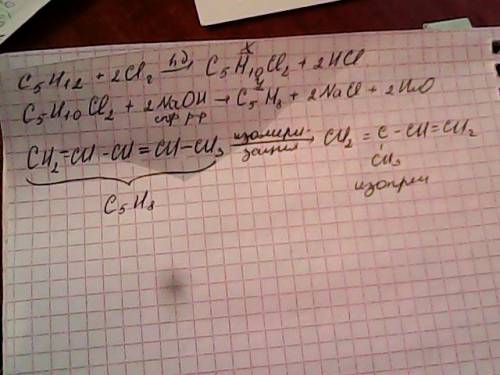 C₅H₁₂ + 2Cl₂ —hν→ C₅H₁₀Cl₂ + 2HCl
x
C₅H₁₀Cl₂ + 2NaOH → C₅H₈ + 2NaCl + 2H₂O
спр р-р
CH₂=CH-CH=CH-CH₃ —изомери-зация→ CH₂ = C - CH=CH₂
CH₃
C₅H₈
изопрен